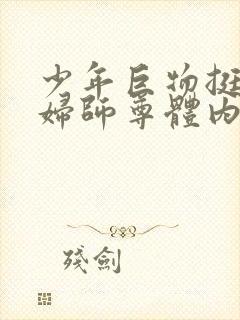 少年巨物挺
婦師尊體內
殘劍